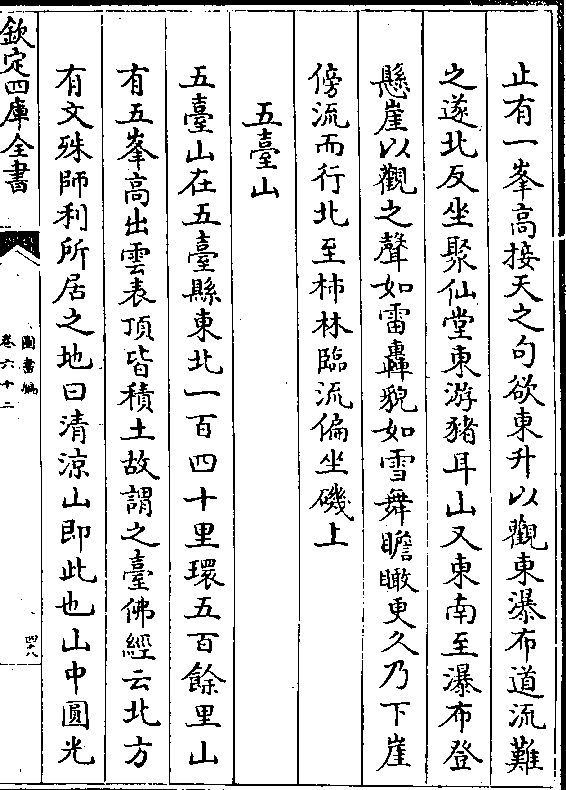 止有一峯高接天之句欲東升以觀東瀑布道流難
之遂北反坐聚仙堂東游豬耳山又東南至瀑布登
懸崖以觀之聲如雷轟貌如雪舞瞻瞰更久乃下崖
傍流而行北至柿林臨流偏坐磯上
五臺山
五臺山在五臺縣東北一百四十里環五百餘里山
有五峯高出雲表頂皆積土故謂之臺佛經云北方
有文殊師利所居之地曰清涼山即此也山中圓光
欽定四庫全書
圖書編
卷六十二
四十八